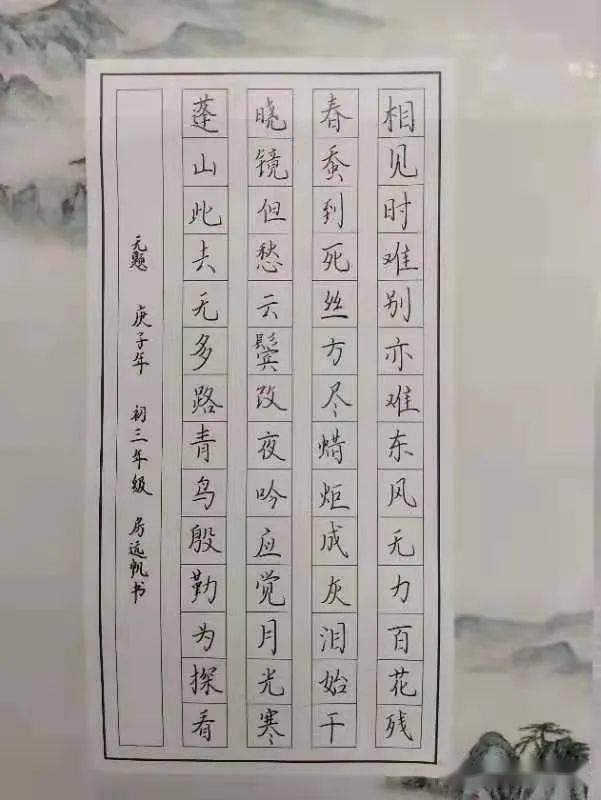 相见时难别亦难东风无力百花残
春蚕到死丝方尽蜡炬成灰泪始干
晓镜但愁云鬓改夜吟应觉月光寒
蓬山此去无多路青鸟殷勤为探看
无题 庚子年 初三年级 房远帆书